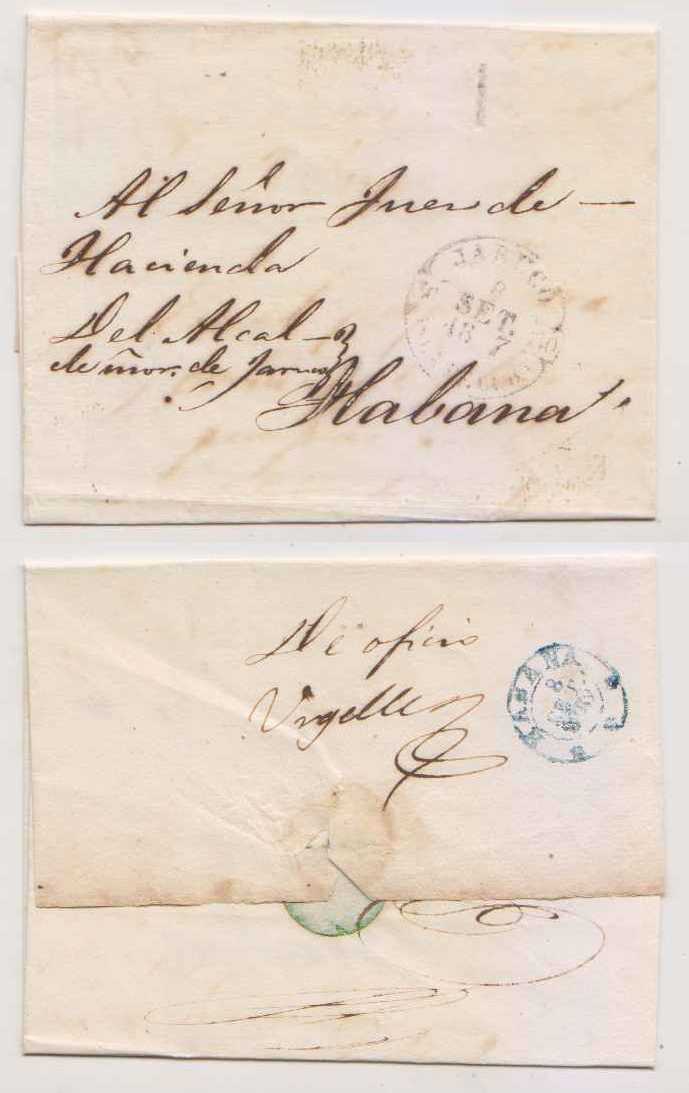 Al Señor Juez de —
Hacienda
Del Alcal-
de ñor. de Jaruco
Habana
JARUCO
8
SET.
18 7
De oficio
Urgelles
HABANA
8